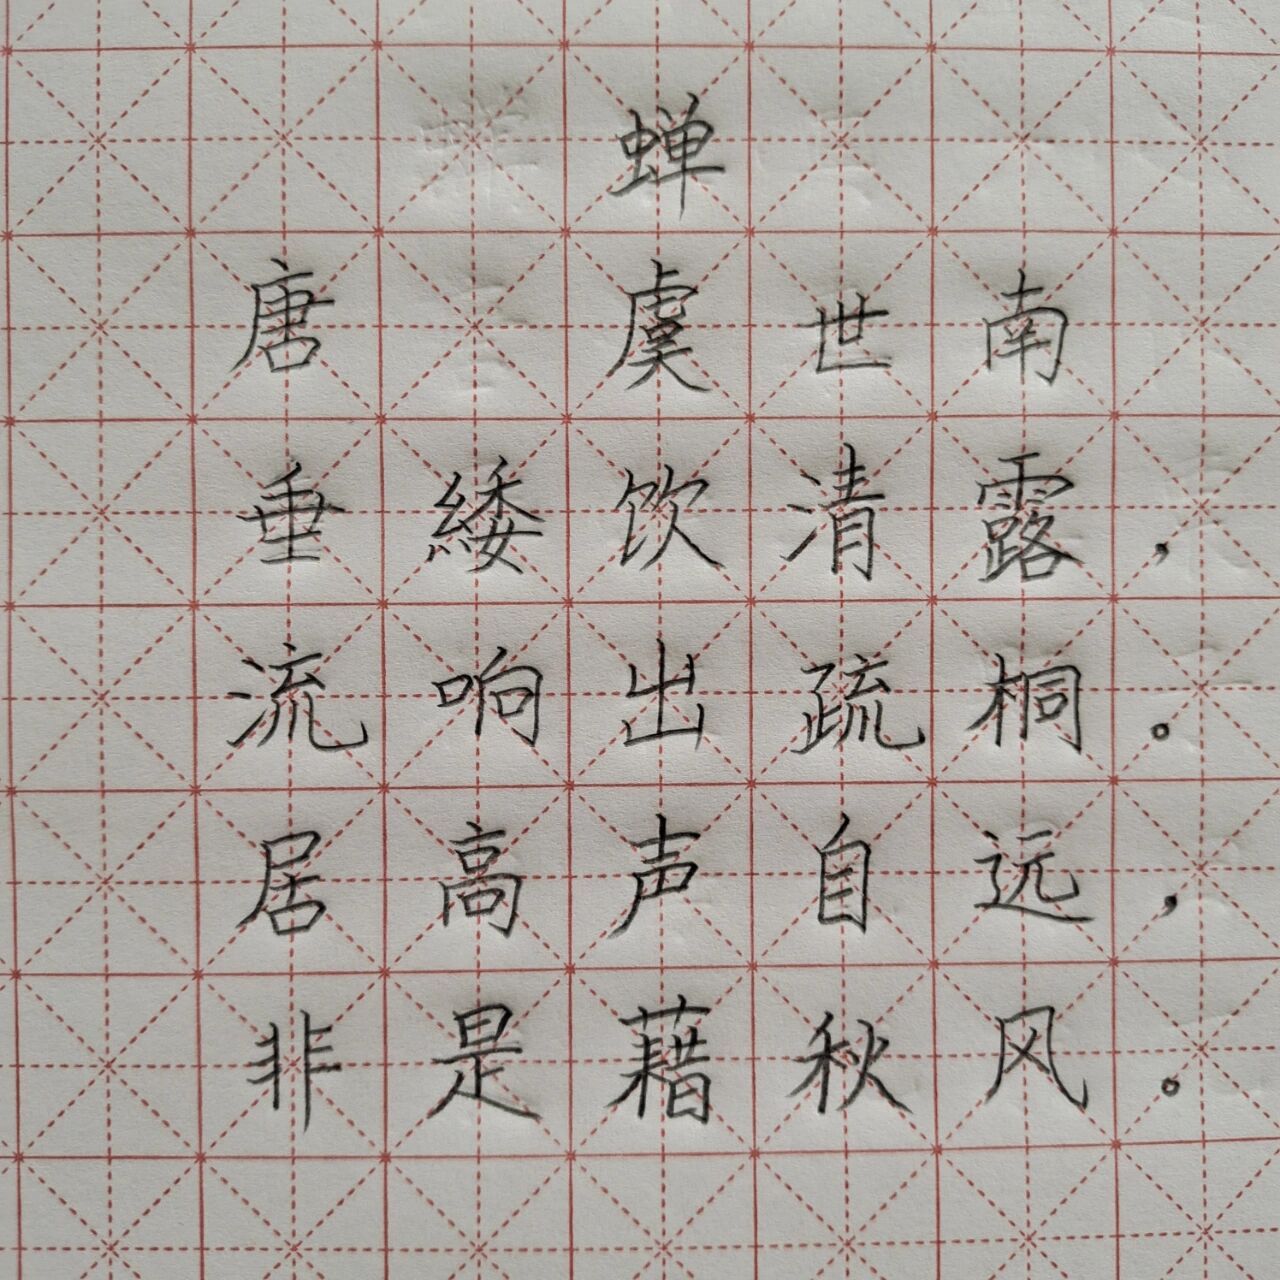 蝉
唐 虞世南
垂緌饮清露，
流响出疏桐。
居高声自远，
非是藉秋风。